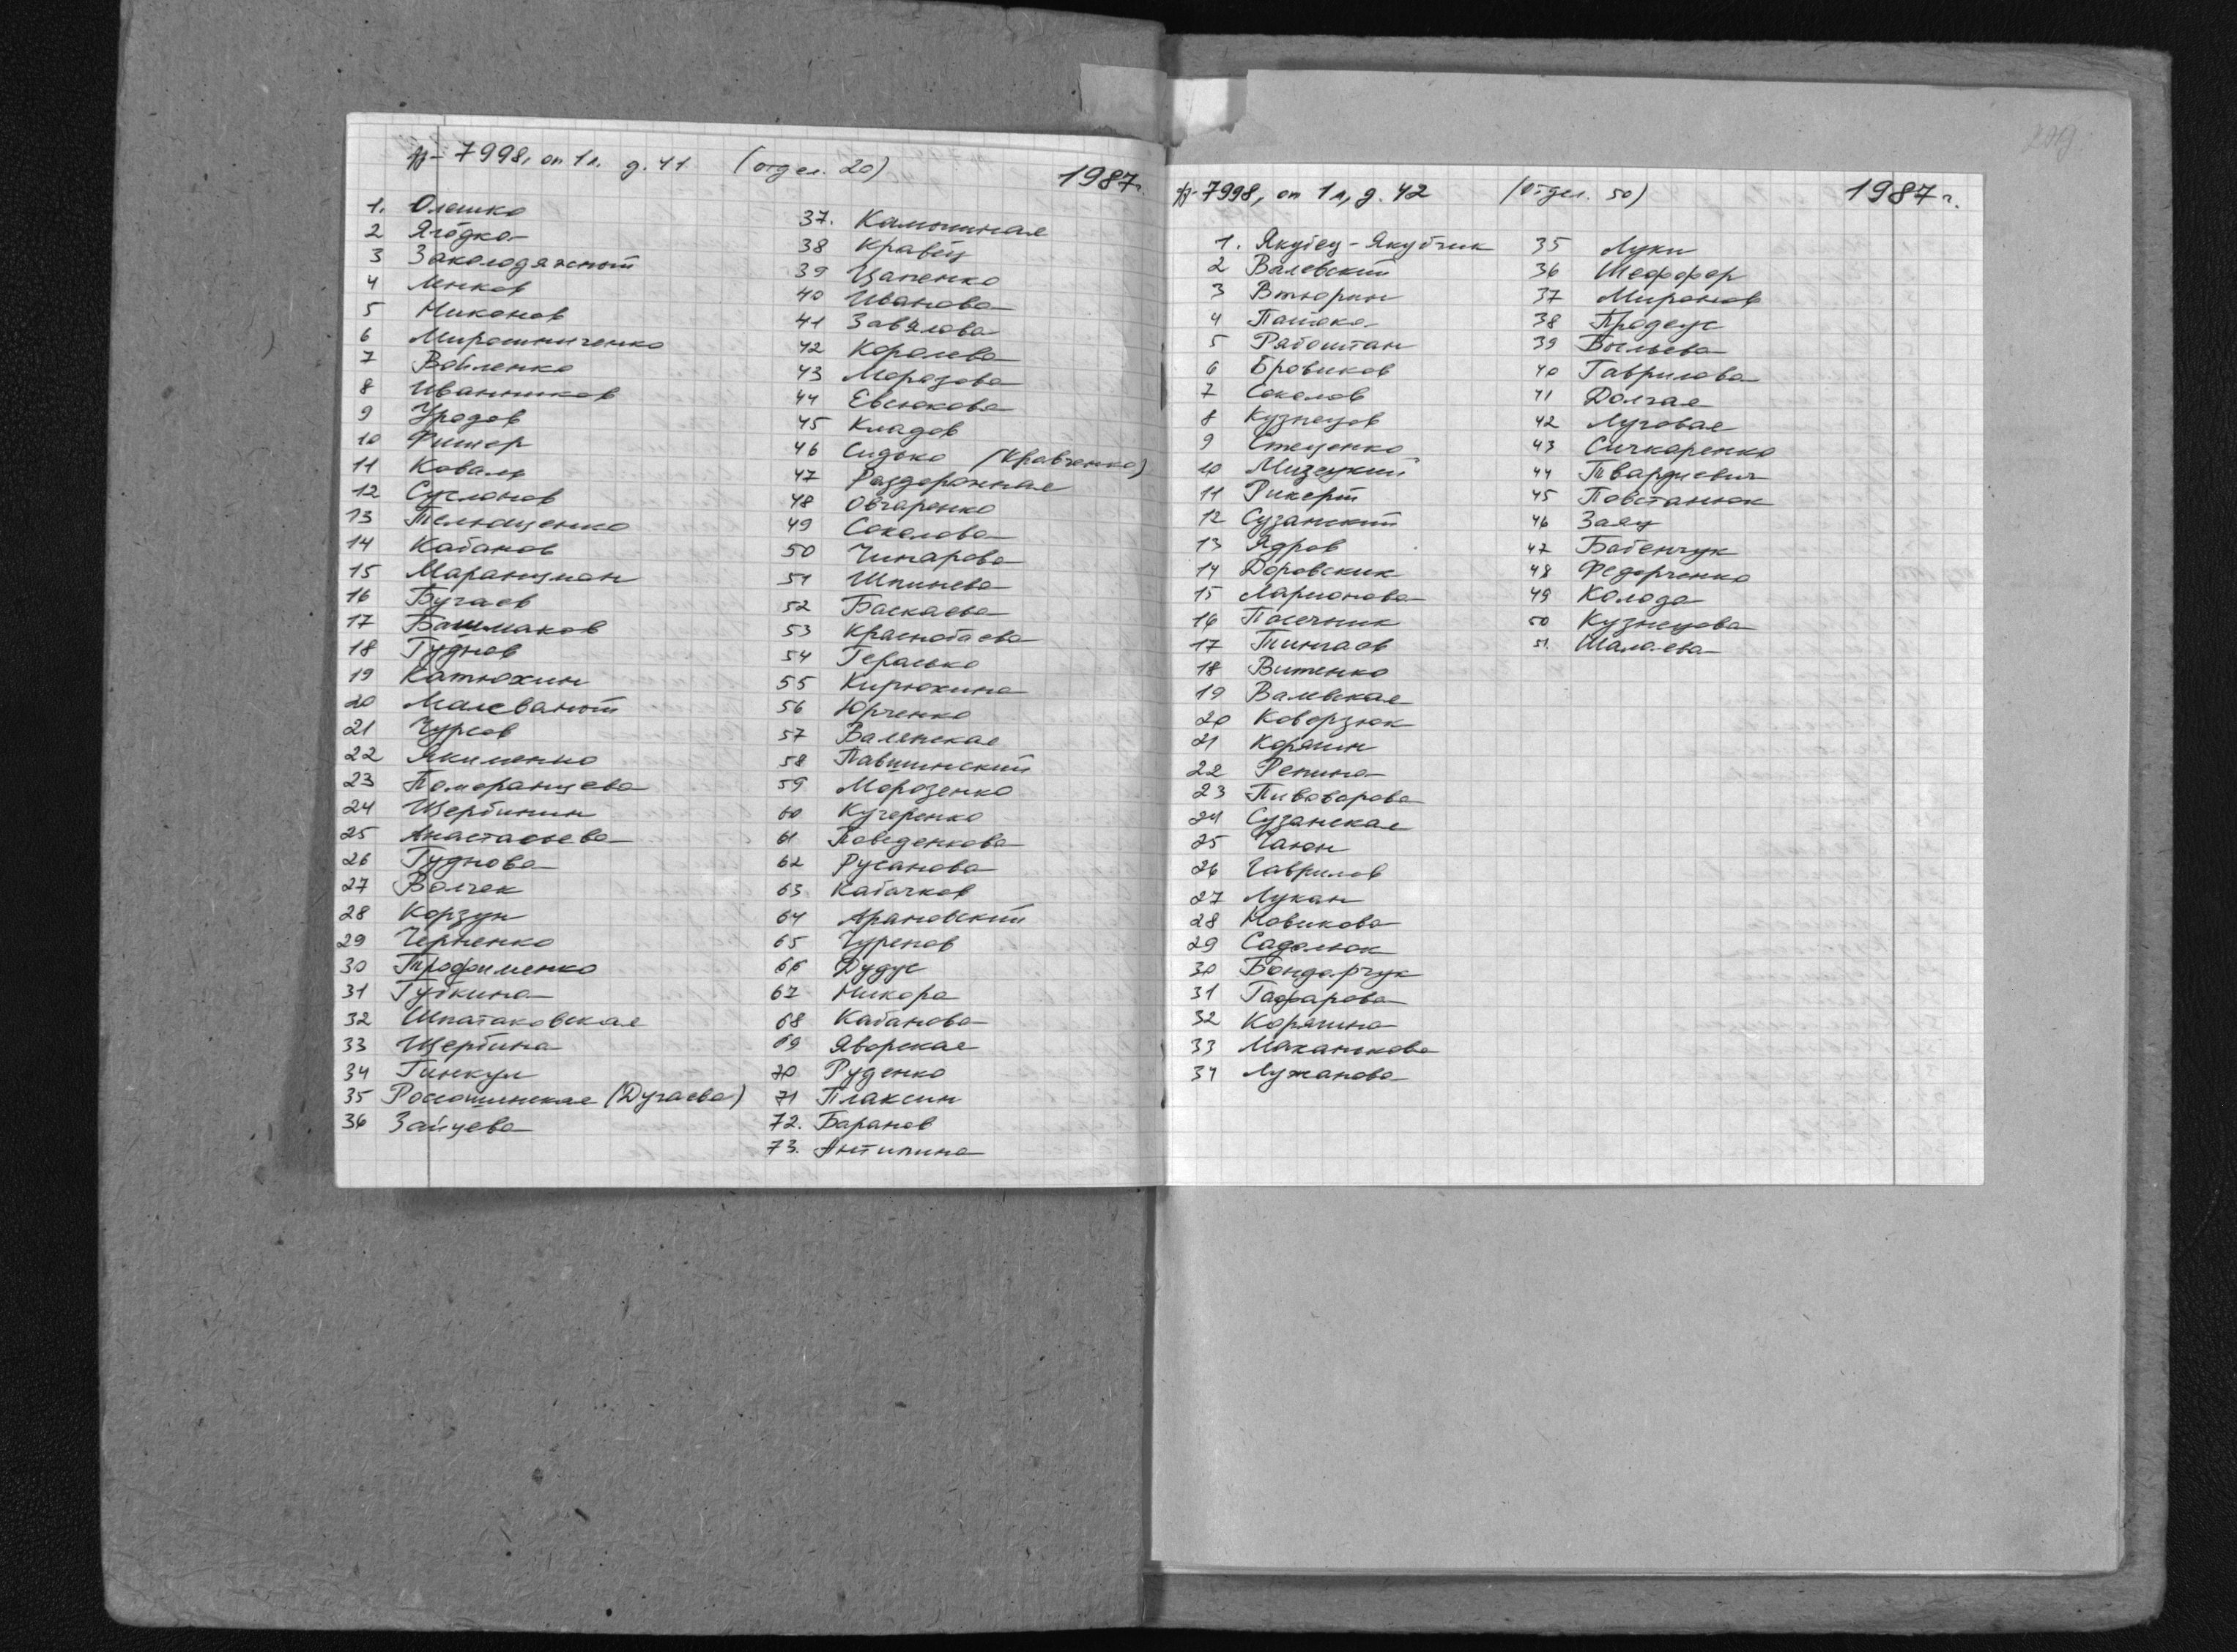 ф-7998, оп 1л. д. 41 (отдел. 20) 1987г.
1. Олешко
2 Ягодка
3 Заколодяжный
4 Ленков
5 Никонов
6 Мирошниченко
7 Войленко
8 Иванников
9 Уродов
10 Фишер
11 Коваль
12 Суслонов
13 Телющенко
14 Кабанов
15 Маранцман
16 Бугаев
17 Башмаков
18 Гуднов
19 Катюхин
20 Малеваный
21 Чурсов
22 Якименко
23 Померанцева
24 Щербинин
25 Анастасьева
26 Гуднова
27 Волчек
28 Корзун
29 Черненко
30 Трофименко
31 Губкина
32 Шпатаковская
33 Щербина
34 Гинкул
35 Росошинская (Дугаева)
36 Зайцева
37. Калининая
38 Кравец
39 Цапенко
40 Иванова
41 Завялова
42 Королева
43 Морозова
44 Евсюкова
45 Кладов
46 Сидько (Кравченко)
47 Раздорожная
48 Овчаренко
49 Соколова
50 Чинарова
51 Шпинева
52 Баскаева
53 Краснобаева
54 Герасько
55 Кирюхина
56 Юрченко
57 Валенская
58 Павшинский
59 Морозенко
60 Кучеренко
61 Поведенкова
62 Русанова
63 Кабачков
64 Арановский
65 Чуренов
66 Дудус
67 Никора
68 Кабанова
69 Яворская
70 Руденко
71 Плаксин
72. Баранов
73. Антипина
ф-7998, оп 1л, д. 42 (отдел. 50) 1987г.
1. Якубец-Якубчик
2 Валевский
3 Втюрин
4 Патока
5 Рабоштан
6 Бровиков
7 Соколов
8 Кузнецов
9 Стеценко
10 Мизецкий
11 Рикерт
12 Сузанский
13 Ядров
14 Доровских
15 Ларионова
16 Пасечник
17 Тингаев
18 Витенко
19 Валевская
20 Коверзюк
21 Корягин
22 Репина
23 Пивоварова
24 Сузанская
25 Чаюн
26 Гаврилов
27 Лукан
28 Новикова
29 Садолюк
30 Бондарчук
31 Гафарова
32 Корягина
33 Маханькова
34 Лужанова
35 Луки
36 Шеффер
37 Миронов
38 Продеус
39 Васльева
40 Гаврилова
41 Долгая
42 Луговая
43 Сичкаренко
44 Твардиевич
45 Повстанюк
46 Заяц
47 Бабенчук
48 Федорченко
49 Колода
50 Кузнецова
51. Шалаева
279